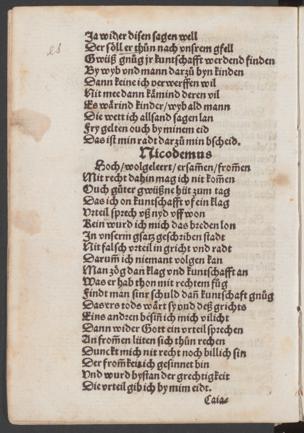 es
Ja wider disen sagen well
Der söll er thůn nach vnsrem gfell
Gwüß gnůg jr kuntschafft werdend finden
By wyb vnd mann darzů byn kinden
Dann keine ich verwerffen wil
Nit meer dann kämind deren vil
Es wärind kinder/wyb ald mann
Die wett ich allsand sagen lan
Fry gelten ouch by minem eid
Das ist min radt darzů min bscheid.
Nicodemus
Hoch/wolgeleert/ersamen/from̄en
Mit recht dahin mag ich nit kom̄en
Ouch gůter gwüßne hüt zum tag
Das ich on kuntschafft vf ein klag
Vrteil sprech vß nyd vff won
Kein wurd ich mich das breden lon
In vnserm gsatz geschriben stadt
Nit falsch vrteil in gricht vnd radt
Darum̄ ich niemant volgen kan
Man zög dan klag vnd kuntschafft an
Was er hab thon mit rechtem fůg
Findt man sinr schuld dan̄ kuntschafft gnůg
Das ers tods wärt sy vnd deß grichts
Eins andren bsin̄ ich mich vilicht
Dann wider Gott ein vrteil sprechen
An from̄en lüten sich thůn rechen
Dunckt mich nit recht noch billich sin
Der from̄keit ich gesinnet bin
Vnd wurd bystan der grechtigkeit
Die vrteil gib ich by mim eidt.
Caia-